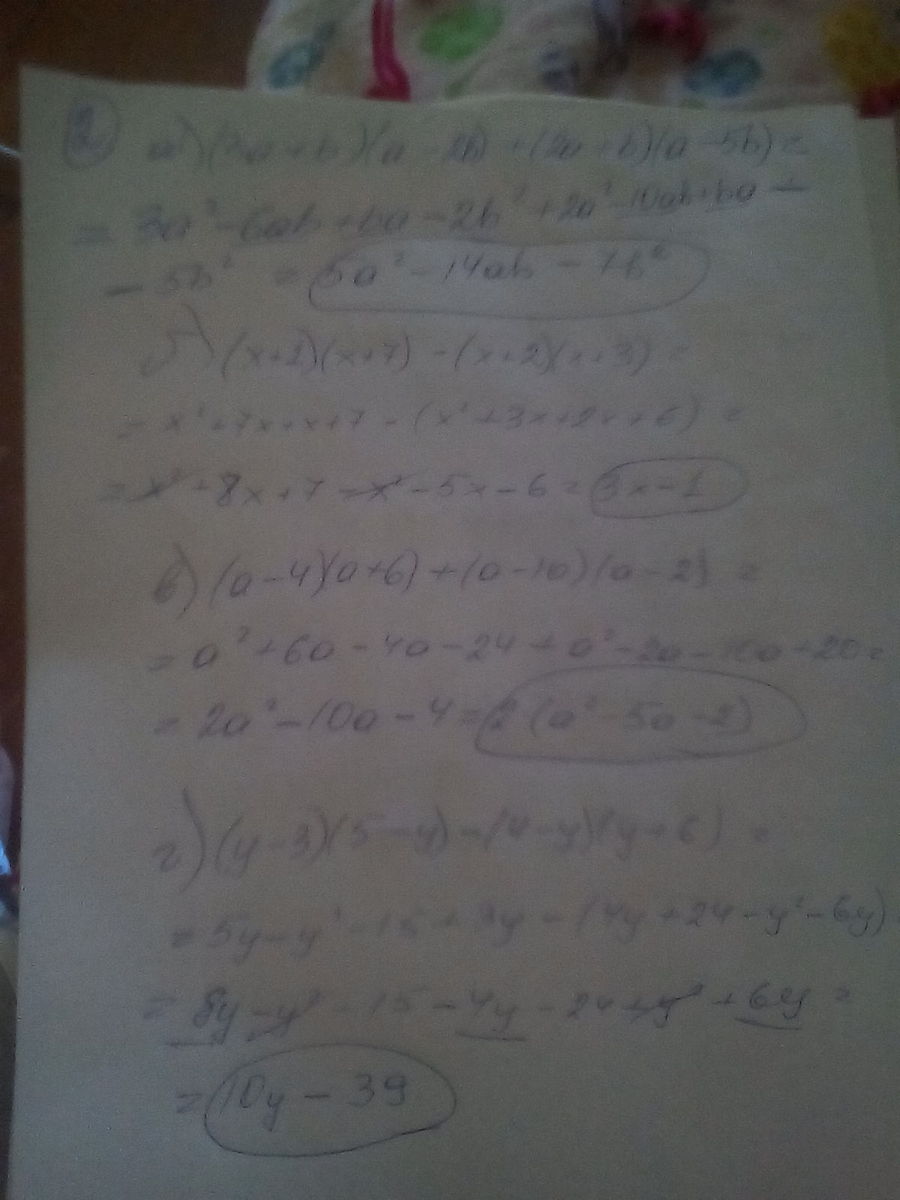 2. а) (3a+b)(a-2b)+(2a+b)(a-5b)=
= 3a²-6ab+ba-2b²+2a²-10ab+ba-
-5b² = 5a²-14ab-7b²
б) (x+1)(x+7)-(x+2)(x+3)=
= x²+7x+x+7-(x²+3x+2x+6)=
= x²+8x+7-x²-5x-6= 3x-1
в) (a-4)(a+6)+(a-10)(a-2)=
= a²+6a-4a-24+a²-2a-10a+20=
= 2a²-10a-4= 2(a²-5a-2)
г) (y-3)(5-y)-(4-y)(y+6)=
= 5y-y²-15+3y-(4y+24-y²-6y)
= 8y-y²-15-4y-24+y²+6y=
= 10y-39